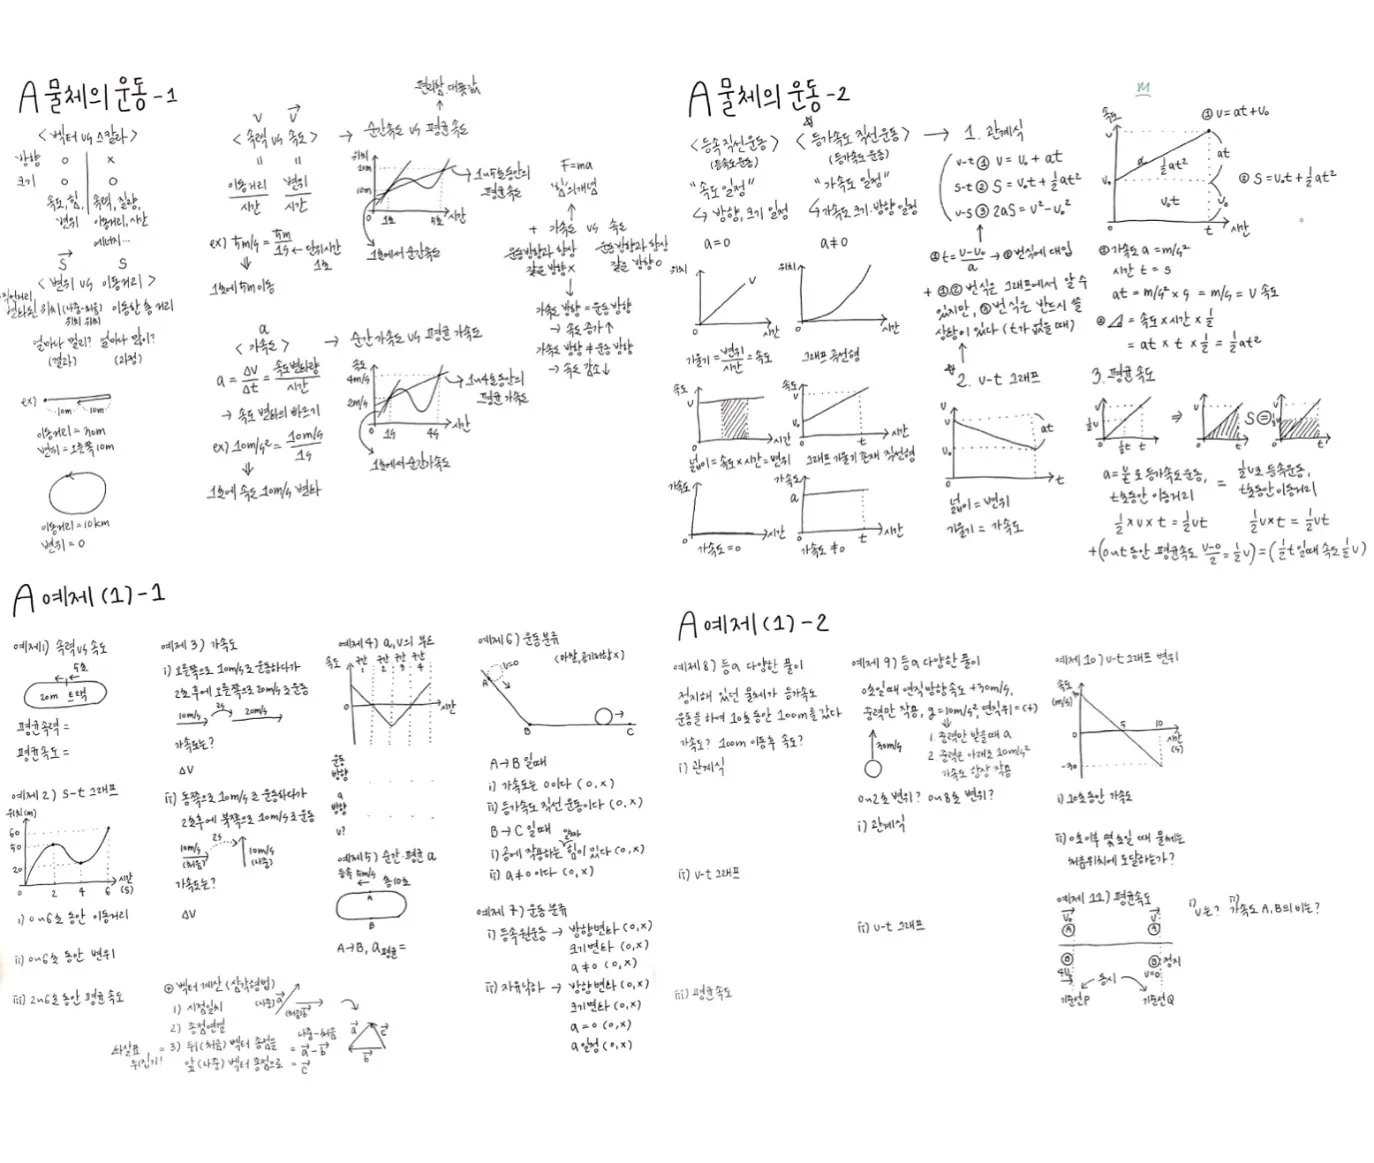 A 물체의 운동-1
< 벡터 vs 스칼라 >
방향 o x
크기 o o
속도, 힘, 변위
속력, 질량, 이동거리, 시간
에너지...
S S
< 변위 vs 이동거리 >
위치 (나중-처음) 이동한 총 거리
위치 위치
얼마나 멀리? 얼마나 많이?
(결과) (과정)
ex)
10m 10m
이동거리 = 30m
변위 = 오른쪽 10m
이동거리 = 10km
변위 = 0
v v
< 속력 vs 속도 >
= =
이동거리/시간 변위/시간
ex) 5m/s = 5m/1s ← 단위시간
1초
1초에 5m 이동
a
< 가속도 >
a = ΔV/Δt = 속도변화량/시간
→ 속도 변화의 빠르기
ex) 10m/s² = 10m/s/1s
1초에 속도 10m/s 변화
→ 순간속도 vs 평균속도
위치
20m
10m
0 1초 5초 시간
1~5초 동안의
평균속도
1초에서 순간속도
→ 순간가속도 vs 평균 가속도
속도
4m/s
2m/s
0 1s 4s 시간
1~4초동안의
평균 가속도
1초에서 순간가속도
F=ma
"힘"의 개념
+ 가속도 vs 속도
운동방향과 항상 같은 방향 x
운동방향과 항상 같은 방향 o
가속도 방향 = 운동 방향
→ 속도 증가↑
가속도 방향 ≠ 운동 방향
→ 속도 감소↓
A 물체의 운동-2
< 등속 직선운동 >
(등속도 운동)
"속도 일정"
↳ 방향, 크기 일정
a=0
위치
V
0 시간
기울기 = 변위/시간 = 속도
속도
V
0 시간
넓이 = 속도×시간 = 변위
가속도
0 시간
가속도 = 0
< 등가속도 직선운동 >
(등가속도 운동)
"가속도 일정"
↳ 가속도 크기·방향 일정
a≠0
위치
0 시간
그래프 곡선형
속도
V
V₀
0 t 시간
그래프 기울기 존재 직선형
가속도
a
0 t 시간
가속도 ≠ 0
→ 1. 관계식
v-t ① V = V₀ + at
s-t ② S = V₀t + ½at²
v-s ③ 2aS = V² - V₀²
① t = V-V₀/a → ② 번식에 대입
+ ①,② 번식은 그래프에서 알 수
있지만, ③번식은 반드시 쓸
상황이 있다 (t가 없을 때)
2. v-t 그래프
V
V₀
0 at t
넓이 = 변위
기울기 = 가속도
m
속도
V
V₀
0 t 시간
a ½at²
V₀t
at
V₀
① V = at + V₀
② S = V₀t + ½at²
① 가속도 a = m/s²
시간 t = s
at = m/s² × s = m/s = V 속도
② ⊿ = 속도 × 시간 × ½
= at × t × ½ = ½at²
3. 평균 속도
V
½V
0 ½t t
⇒ S
a = 불로 등가속도운동,
t초동안 이동거리
=
½V로 등속운동,
t초동안 이동거리
½×V×t = ½Vt ½V×t = ½Vt
+(0~t 동안 평균속도 V-0/2 = ½V) = (½t 일때 속도 ½V)
A 예제 (1)-1
예제1) 속력 vs 속도
5초
20m 트랙
평균속력 =
평균속도 =
예제2) s-t 그래프
위치(m)
60
50
20
0 2 4 6 시간(s)
i) 0~6초 동안 이동거리
ii) 0~6초 동안 변위
iii) 2~6초 동안 평균속도
예제 3) 가속도
i) 오른쪽으로 10m/s로 운동하다가
2초 후에 오른쪽으로 20m/s로 운동
10m/s 2s 20m/s
가속도는?
ΔV
ii) 동쪽으로 10m/s로 운동하다가
2초후에 북쪽으로 10m/s로 운동
10m/s
(처음)
2s
10m/s
(나중)
가속도는?
ΔV
⊕ 벡터 계산 (삼각형법)
1) 시점일치
2) 종점연결
3) 뒤(처음) 벡터 종점을
앞(나중) 벡터 종점으로
화살표
뒤집기!
(나중) a
(처음) b
나중-처음
= a - b
= c
a c
b
예제 4) a, v의 부호
속도 구간1 구간2 구간3 구간4
0 시간
운동
방향
a
방향
v?
예제5) 순간·평균 a
등속 5m/s 총 10초
A
B
A→B, a평균 =
예제 6) 운동분류
(마찰, 공기저항 x)
V=0
A
B C
A→B 일때
i) 가속도는 0이다 (o, x)
ii) 등가속도 직선 운동이다 (o, x)
B→C 일때
알짜
i) 공에 작용하는 힘이 있다 (o, x)
ii) a≠0 이다 (o, x)
예제 7) 운동 분류
i) 등속원운동 → 방향변화 (o, x)
크기변화 (o, x)
a≠0 (o, x)
ii) 자유낙하 → 방향변화 (o, x)
크기변화 (o, x)
a=0 (o, x)
a일정 (o, x)
A 예제 (1)-2
예제 8) 등a 다양한 풀이
정지해 있던 물체가 등가속도
운동을 하여 10초 동안 100m를 갔다
가속도? 100m 이동후 속도?
i) 관계식
ii) v-t 그래프
iii) 평균속도
예제 9) 등a 다양한 풀이
0초일때 연직방향 속도 +30m/s,
중력만 작용, g=10m/s², 연직위=(+)
1. 중력만 받을때 a
2. 중력은 아래로 10m/s²
가속도 항상 작용
30m/s
0~2초 변위? 0~8초 변위?
i) 관계식
ii) v-t 그래프
예제 10) v-t 그래프 변위
속도
(m/s)
30
0
-30
5 10
시간
(s)
i) 10초 동안 가속도
ii) 0초이후 몇초일 때 물체는
처음위치에 도달하는가?
예제 11) 평균속도
i) V는? ii) 가속도 A, B의 비는?
V₀ V
A A
B B 정지
4V₀ V=0
동시
기준선P 기준선Q